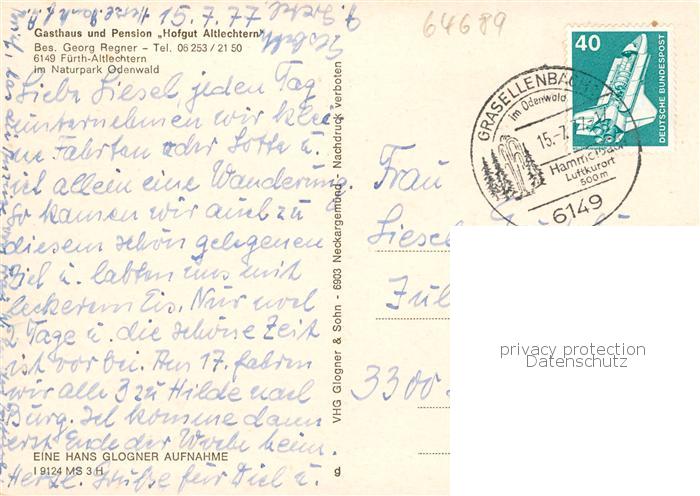 15.7.77
64689
Gasthaus und Pension „Hofgut Altlechtern"
Bes. Georg Regner – Tel. 06 253 / 21 50
6149 Fürth-Altlechtern
im Naturpark Odenwald
Liebe Liesel, jeden Tag
unternehmen wir klei-
ne Fahrten oder Lotte u.
ich allein eine Wanderung.
So kamen wir auch zu
diesem schön gelegenen
Ziel u. labten uns mit
leckerem Eis. Nur noch
Tage u. die schöne Zeit
ist vorbei. Am 17. fahren
wir alle 3 zu Hilde nach
Burg. Ich komme dann
erst Ende der Woche heim.
Herzl. Grüße für Dich u.
EINE HANS GLOGNER AUFNAHME
I 9124 MS 3 H
g
VHG Glogner & Sohn - 6903 Neckargemünd - Nachdruck verboten
40
DEUTSCHE BUNDESPOST
GRASELLENBACH
im Odenwald
15.-7.
Hammelbach
Luftkurort
500m
6149
Frau
Liesel
3300
privacy protection
Datenschutz